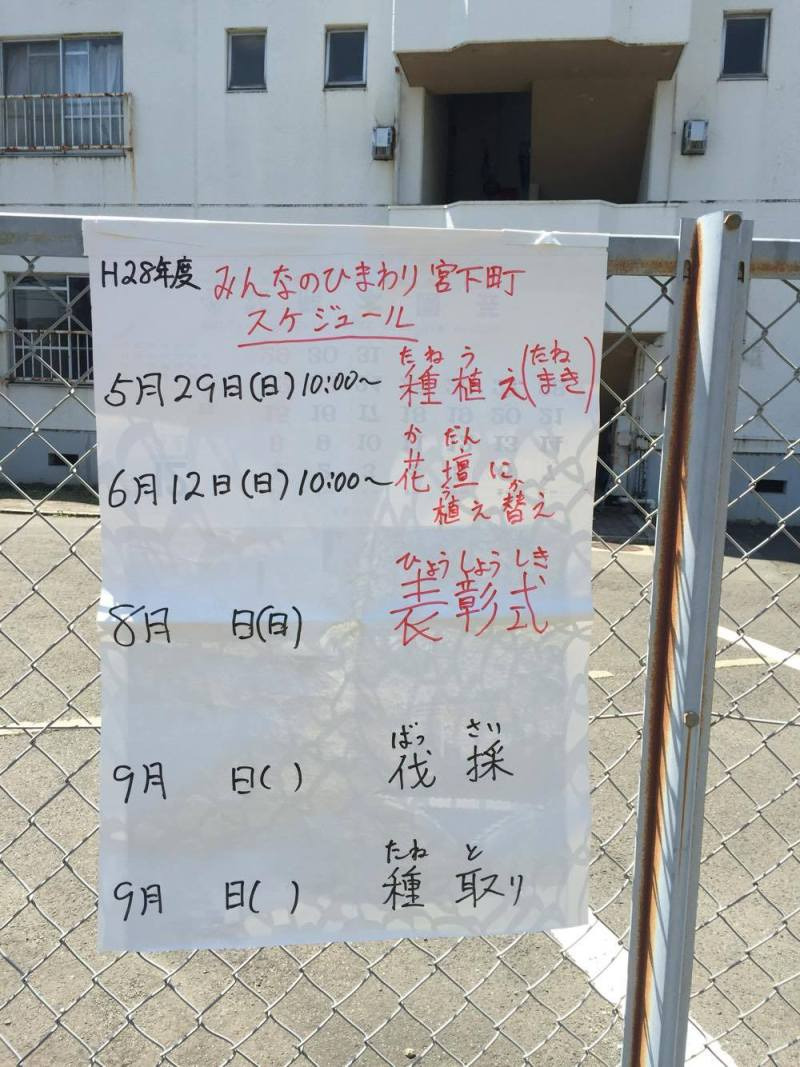 H28年度 みんなのひまわり 宮下町
スケジュール
たね う
5月29日(日)10:00〜 種植え(たねまき)
か だん
6月12日(日)10:00〜 花壇に
う か
植え替え
ひょうしょうしき
8月 日(日) 表彰式
ばっ さい
9月 日( ) 伐採
たね と
9月 日( ) 種取り